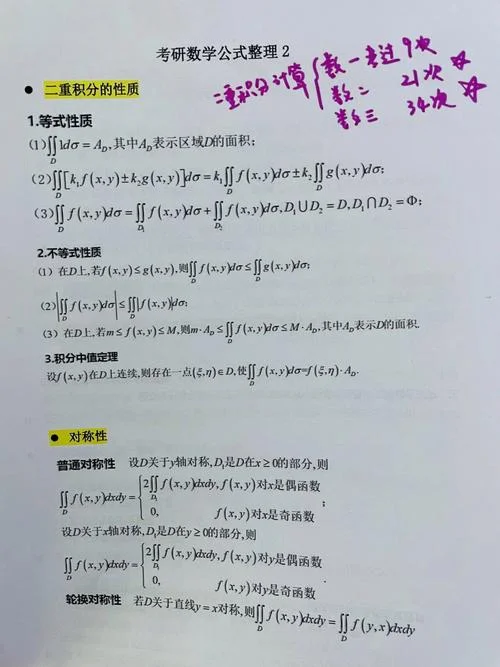 考研数学公式整理 2
二重积分计算 { 数一考过9次
数二 21次 ☆
数三 34次 ☆
● 二重积分的性质
1.等式性质
(1)∬_D 1dσ = A_D,其中A_D表示区域D的面积;
(2)∬_D [k₁f(x,y)±k₂g(x,y)]dσ = k₁∬_D f(x,y)dσ±k₂∬_D g(x,y)dσ;
(3)∬_D f(x,y)dσ=∬_{D₁} f(x,y)dσ+∬_{D₂} f(x,y)dσ,D₁∪D₂=D,D₁∩D₂=Φ;
2.不等式性质
(1) 在D上,若f(x,y)≤g(x,y),则∬_D f(x,y)dσ≤∬_D g(x,y)dσ;
(2)|∬_D f(x,y)dσ|≤∬_D |f(x,y)|dσ;
(3) 在D上,若m≤f(x,y)≤M,则m·A_D≤∬_D f(x,y)dσ≤M·A_D,其中A_D表示D的面积.
3.积分中值定理
设f(x,y)在D上连续,则存在一点(ξ,η)∈D,使∬_D f(x,y)dσ=f(ξ,η)·A_D.
● 对称性
普通对称性 设D关于y轴对称,D₁是D在x≥0的部分,则
∬_D f(x,y)dxdy = { 2∬_{D₁} f(x,y)dxdy,f(x,y)对x是偶函数
0, f(x,y)对x是奇函数 ;
设D关于x轴对称,D₁是D在y≥0的部分,则
∬_D f(x,y)dxdy = { 2∬_{D₁} f(x,y)dxdy,f(x,y)对y是偶函数
0, f(x,y)对y是奇函数
轮换对称性 若D关于直线y=x对称,则∬_D f(x,y)dxdy=∬_D f(y,x)dxdy